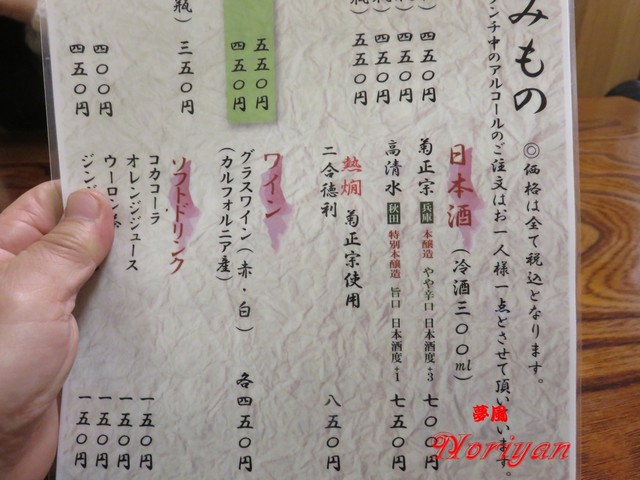 みもの
◎価格は全て税込となります。
ンチ中のアルコールのご注文はお一人様一点とさせて頂い います。
四五〇円
四五〇円
四五〇円
五五〇円
瓶)
五五〇円
四五〇円
瓶) 三五〇円
四〇〇円
四五〇円
日本酒(冷酒三〇〇ml)
菊正宗 兵庫 本醸造 やや辛口 日本酒度+3 七〇〇円
高清水 秋田 特別本醸造 旨口 日本酒度+1 七五〇円
熱燗 菊正宗使用
二合徳利 八五〇円
ワイン
グラスワイン(赤・白) 各四五〇円
(カルフォルニア産)
ソフトドリンク
コカコーラ 一五〇円
オレンジジュース 一五〇円
ウーロン茶 一五〇円
ジン 一五〇円
夢魔
Noriyan